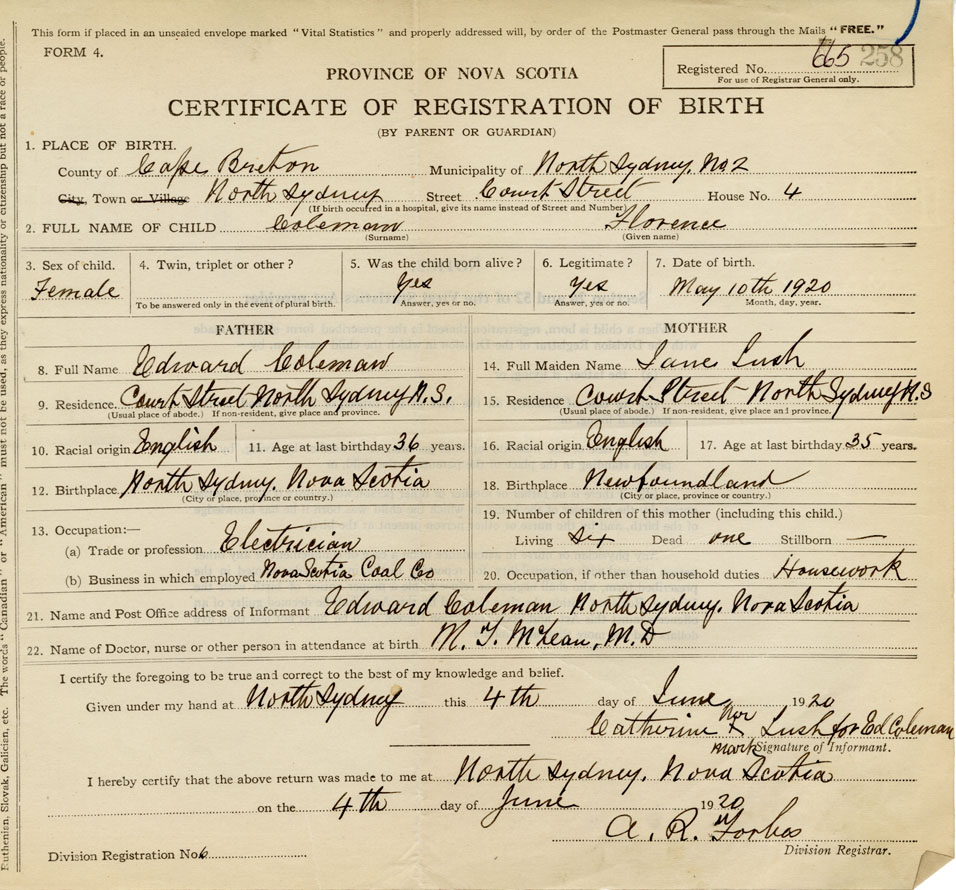 This form if placed in an unsealed envelope marked "Vital Statistics" and properly addressed will, by order of the Postmaster General pass through the Mails "FREE."
FORM 4.
Registered No. 665 258
For use of Registrar General only.
PROVINCE OF NOVA SCOTIA
CERTIFICATE OF REGISTRATION OF BIRTH
(BY PARENT OR GUARDIAN)
1. PLACE OF BIRTH.
County of Cape Breton Municipality of North Sydney. No. 2
City, Town or Village North Sydney Street Court Street House No. 4
(If birth occurred in a hospital, give its name instead of Street and Number)
2. FULL NAME OF CHILD Coleman Florence
(Surname) (Given name)
3. Sex of child. 4. Twin, triplet or other? 5. Was the child born alive? 6. Legitimate? 7. Date of birth.
Female Yes Yes May 10th 1920
To be answered only in the event of plural birth. Answer, yes or no. Answer, yes or no. Month, day, year.
FATHER MOTHER
8. Full Name Edward Coleman 14. Full Maiden Name Jane Lush
9. Residence. Court Street North Sydney N.S. 15. Residence Court Street North Sydney N.S
(Usual place of abode.) If non-resident, give place and province. (Usual place of abode.) If non-resident, give place and province.
10. Racial origin English 11. Age at last birthday 36 years. 16. Racial origin English 17. Age at last birthday 35 years.
12. Birthplace North Sydney. Nova Scotia 18. Birthplace Newfoundland
(City or place, province or country.) (City or place, province or country.)
13. Occupation:— 19. Number of children of this mother (including this child.)
(a) Trade or profession Electrician Living six Dead one Stillborn —
(b) Business in which employed Nova Scotia Coal Co 20. Occupation, if other than household duties Housework
21. Name and Post Office address of Informant Edward Coleman North Sydney. Nova Scotia
22. Name of Doctor, nurse or other person in attendance at birth M. T. McLean, M.D
I certify the foregoing to be true and correct to the best of my knowledge and belief.
Given under my hand at North Sydney this 4th day of June 1920
Catherine her x Lush for Ed Coleman
mark Signature of Informant.
I hereby certify that the above return was made to me at North Sydney. Nova Scotia
on the 4th day of June 1920
A. R. Forbes
Division Registrar.
Division Registration No. 6
Ruthenian, Slovak, Galician, etc. The words "Canadian" or "American" must not be used, as they express nationality or citizenship but not a race or people.